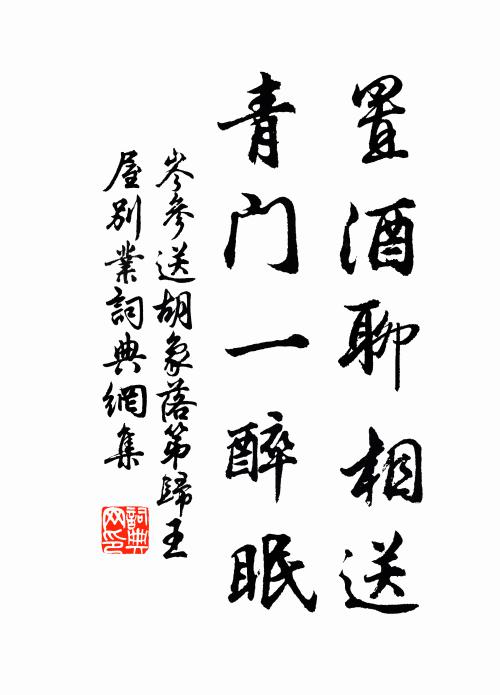 置酒聊相送
青門一醉眠
岑參送胡象落第歸王
屋別業詞典網集
詞典
网印